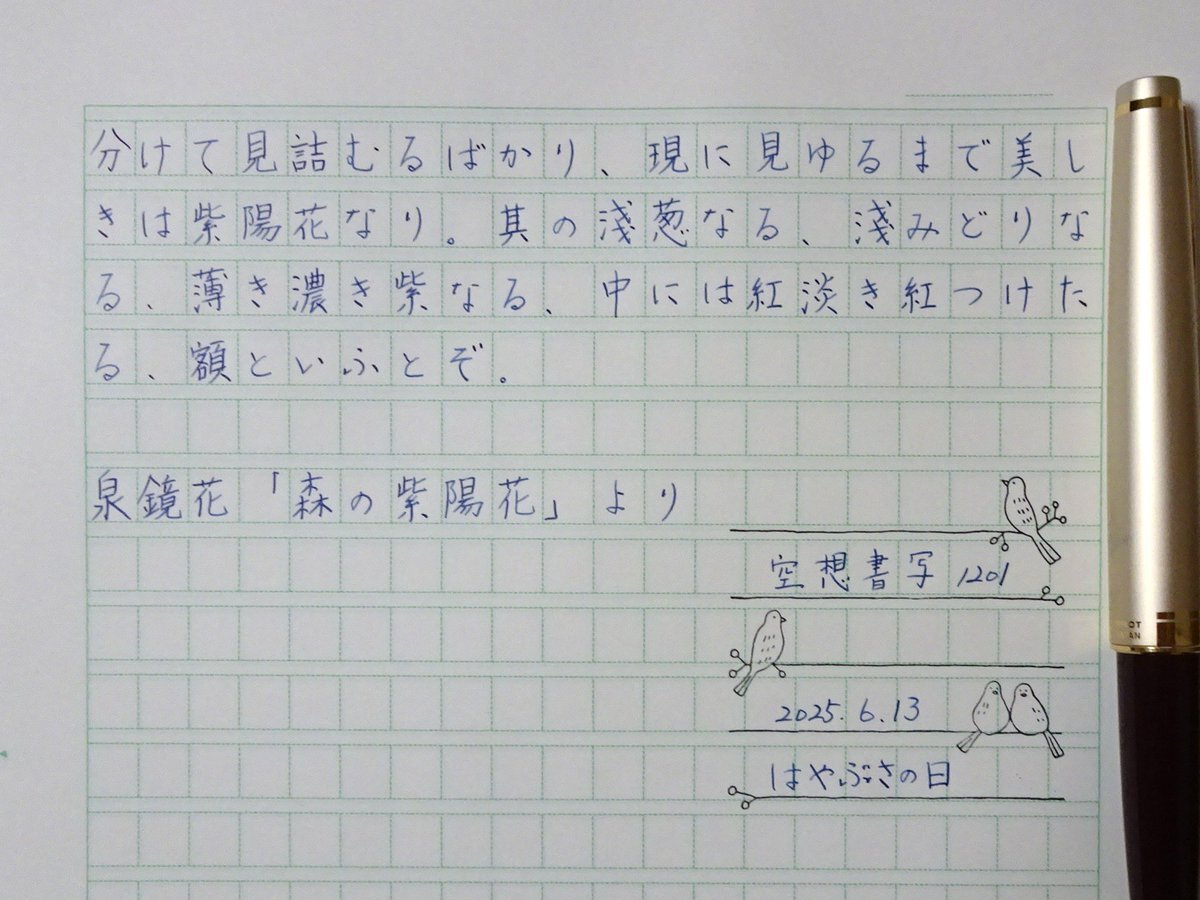 分けて見詰むるばかり、現に見ゆるまで美し
きは紫陽花なり。其の淺葱なる、淺みどりな
る、薄き濃き紫なる、中には紅淡き紅つけた
る、額といふとぞ。
泉鏡花「森の紫陽花」より
空想書写 1201
2025.6.13
はやぶさの日